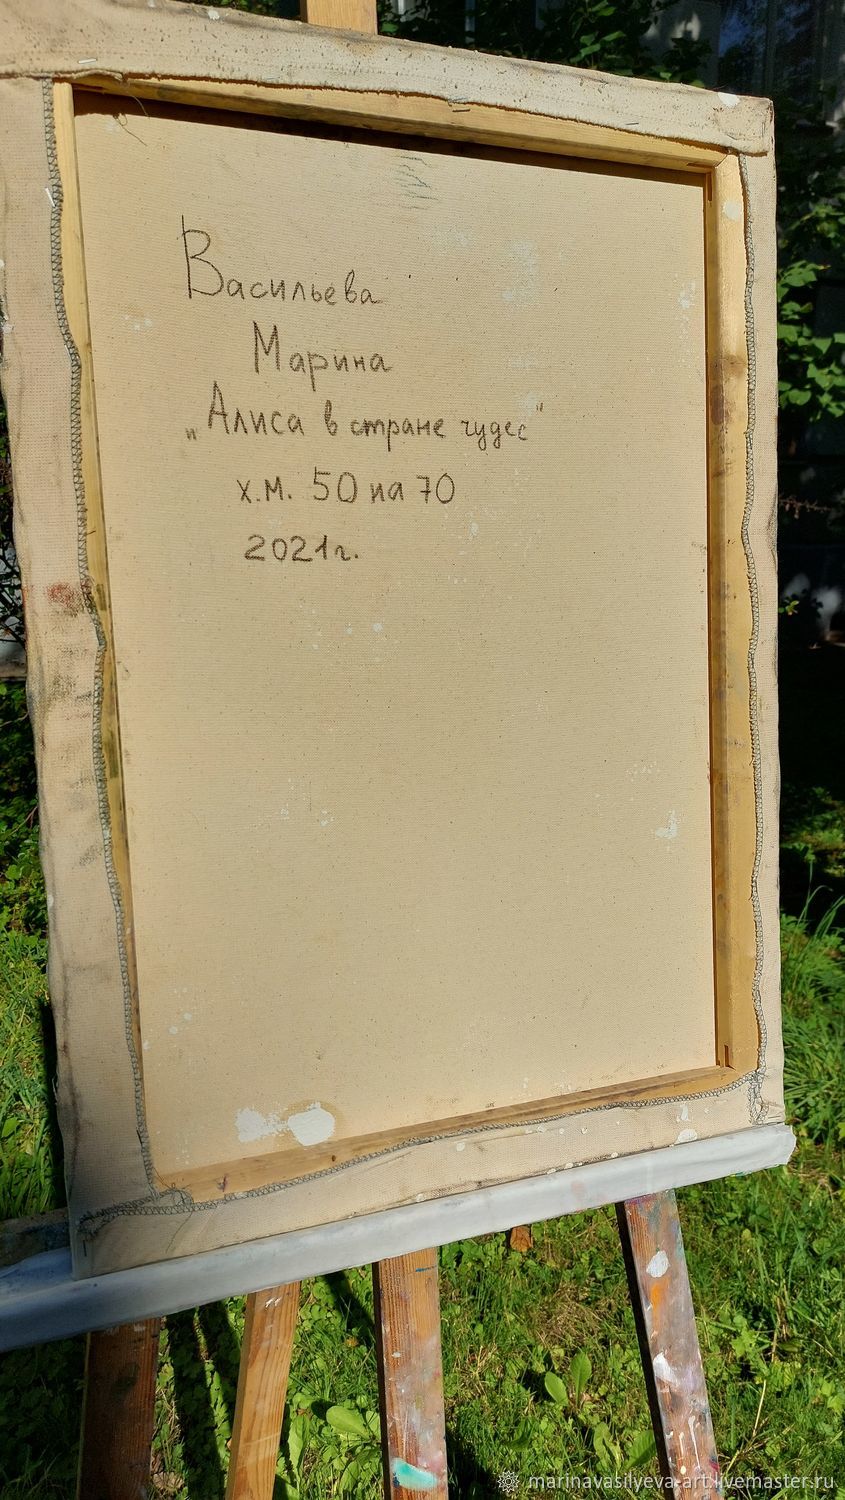 Васильева
Марина
„Алиса в стране чудес"
х.м. 50 на 70
2021г.
marinavasilyeva-art.livemaster.ru